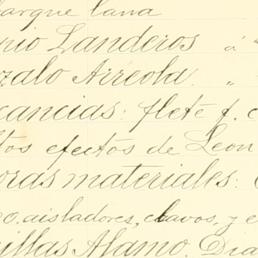 bargue lana
nio Landeros á "
zalo Arreola. "
cancias: flete f. c
tos efectos de Leon
oras materiales:
o, aisladores, clavos, y e
illas Alamo. Dia